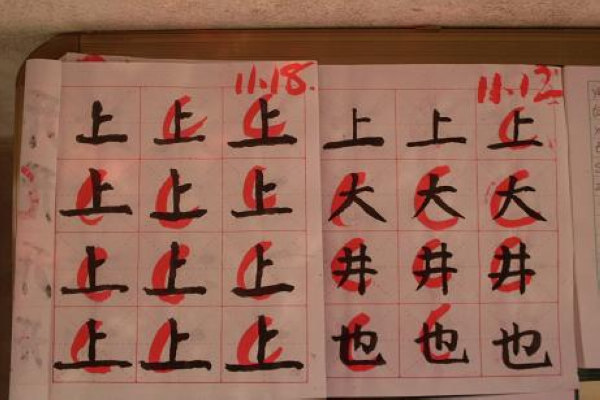 11.18.
上上上
上上上
上上上
上上上
11.12
上上上
大大大
井井井
也也也